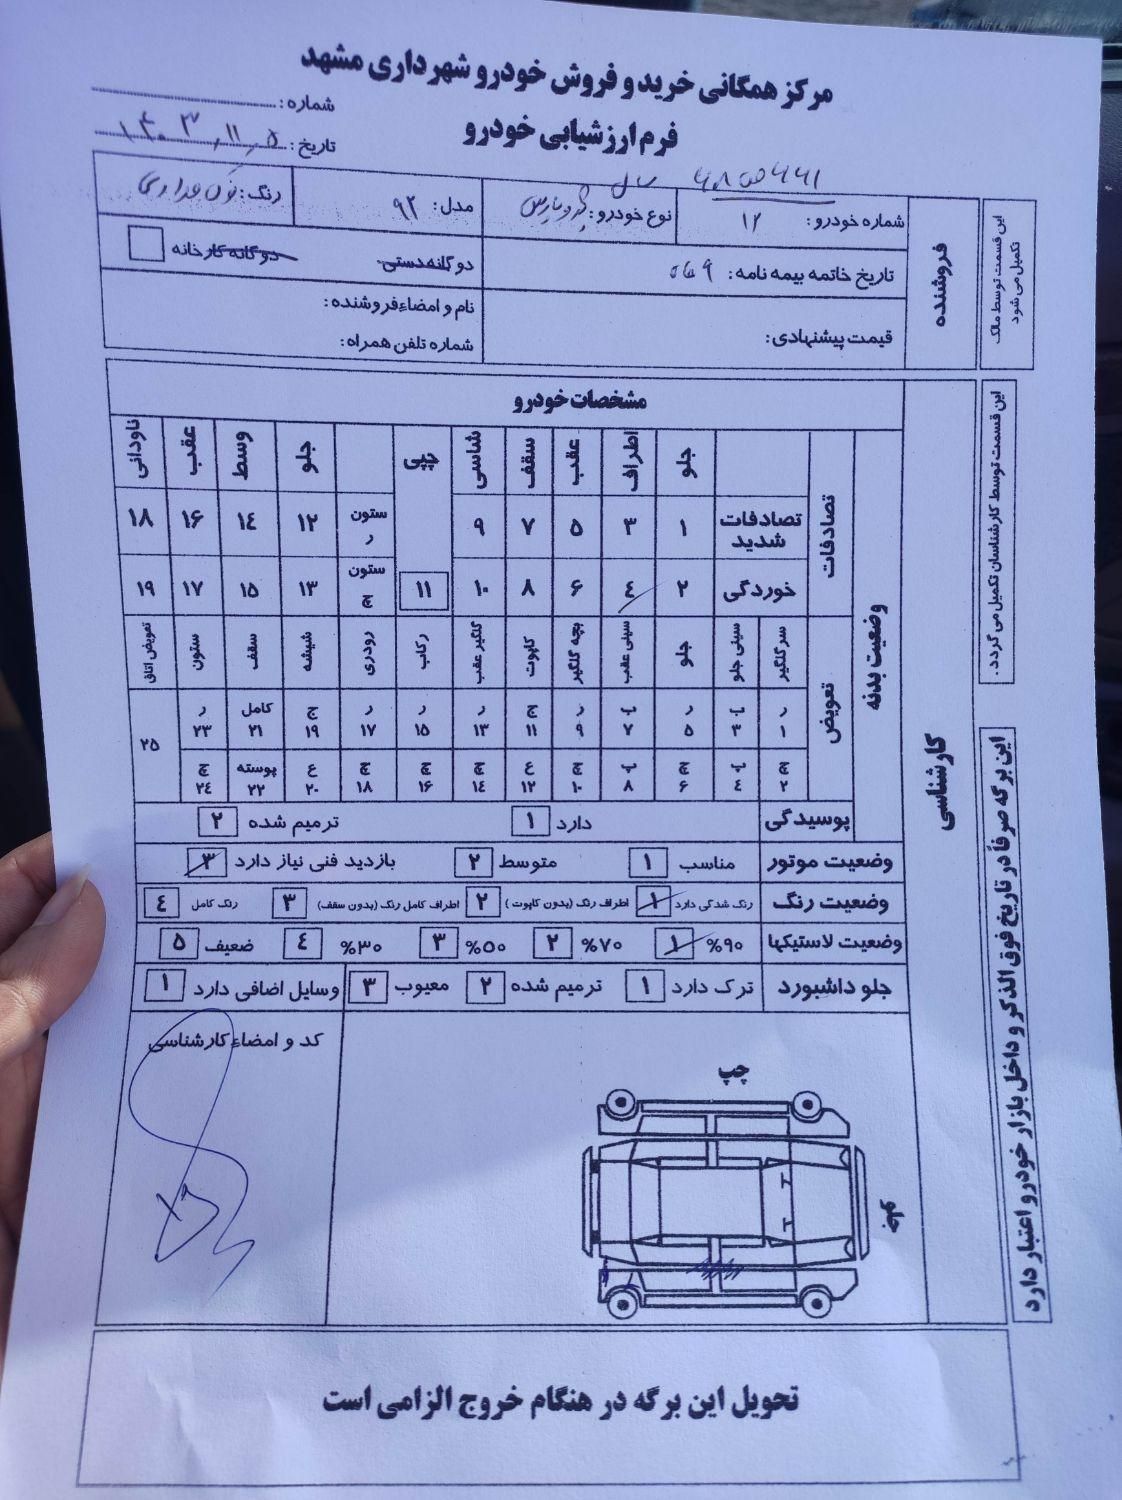 مرکز همگانی خرید و فروش خودرو شهرداری مشهد
فرم ارزشیابی خودرو
شماره:
تاریخ: ۱۴۰۳/۱۱/۵
این قسمت توسط مالک تکمیل می شود
فروشنده
شماره خودرو: ۱۲
نوع خودرو:
مدل: ۹۲
رنگ:
تاریخ خاتمه بیمه نامه:
دوگانه دستی
دوگانه کارخانه
قیمت پیشنهادی:
نام و امضاء فروشنده:
شماره تلفن همراه:
این قسمت توسط کارشناسان تکمیل می گردد.
کارشناسی
مشخصات خودرو
وضعیت بدنه
تصادفات
جلو اطراف عقب سقف شاسی چپی جلو وسط عقب ناودانی
تصادفات شدید ۱ ۳ ۵ ۷ ۹ ستون ر ۱۲ ۱٤ ۱۶ ۱۸
خوردگی ۲ ٤ ۶ ۸ ۱۰ ۱۱ ستون چ ۱۳ ۱۵ ۱۷ ۱۹
تعویض
سرگلگیر سینی جلو جلو سینی عقب بچه گلگیر کاپوت گلگیر عقب رکاب رودری شیشه سقف ستون تعویض اتاق
ر ۱ ب ۳ ر ۵ ب ۷ ر ۹ ج ۱۱ ر ۱۳ ر ۱۵ ر ۱۷ ج ۱۹ کامل ۲۱ ر ۲۳ ۲۵
چ ۲ ب ٤ چ ۶ ب ۸ چ ۱۰ ع ۱۲ چ ۱٤ چ ۱۶ چ ۱۸ ع ۲۰ پوسته ۲۲ چ ۲٤
پوسیدگی دارد ۱ ترمیم شده ۲
وضعیت موتور مناسب ۱ متوسط ۲ بازدید فنی نیاز دارد ۳
وضعیت رنگ رنگ شدگی دارد ۱ اطراف رنگ (بدون کاپوت) ۲ اطراف کامل رنگ (بدون سقف) ۳ رنگ کامل ٤
وضعیت لاستیکها ۹۰% ۱ ۷۰% ۲ ۵۰% ۳ ۳۰% ٤ ضعیف ۵
جلو داشبورد ترک دارد ۱ ترمیم شده ۲ معیوب ۳ وسایل اضافی دارد ۱
کد و امضاء کارشناسی
چپ
جلو
این برگه صرفاً در تاریخ فوق الذکر و داخل بازار خودرو اعتبار دارد
تحویل این برگه در هنگام خروج الزامی است